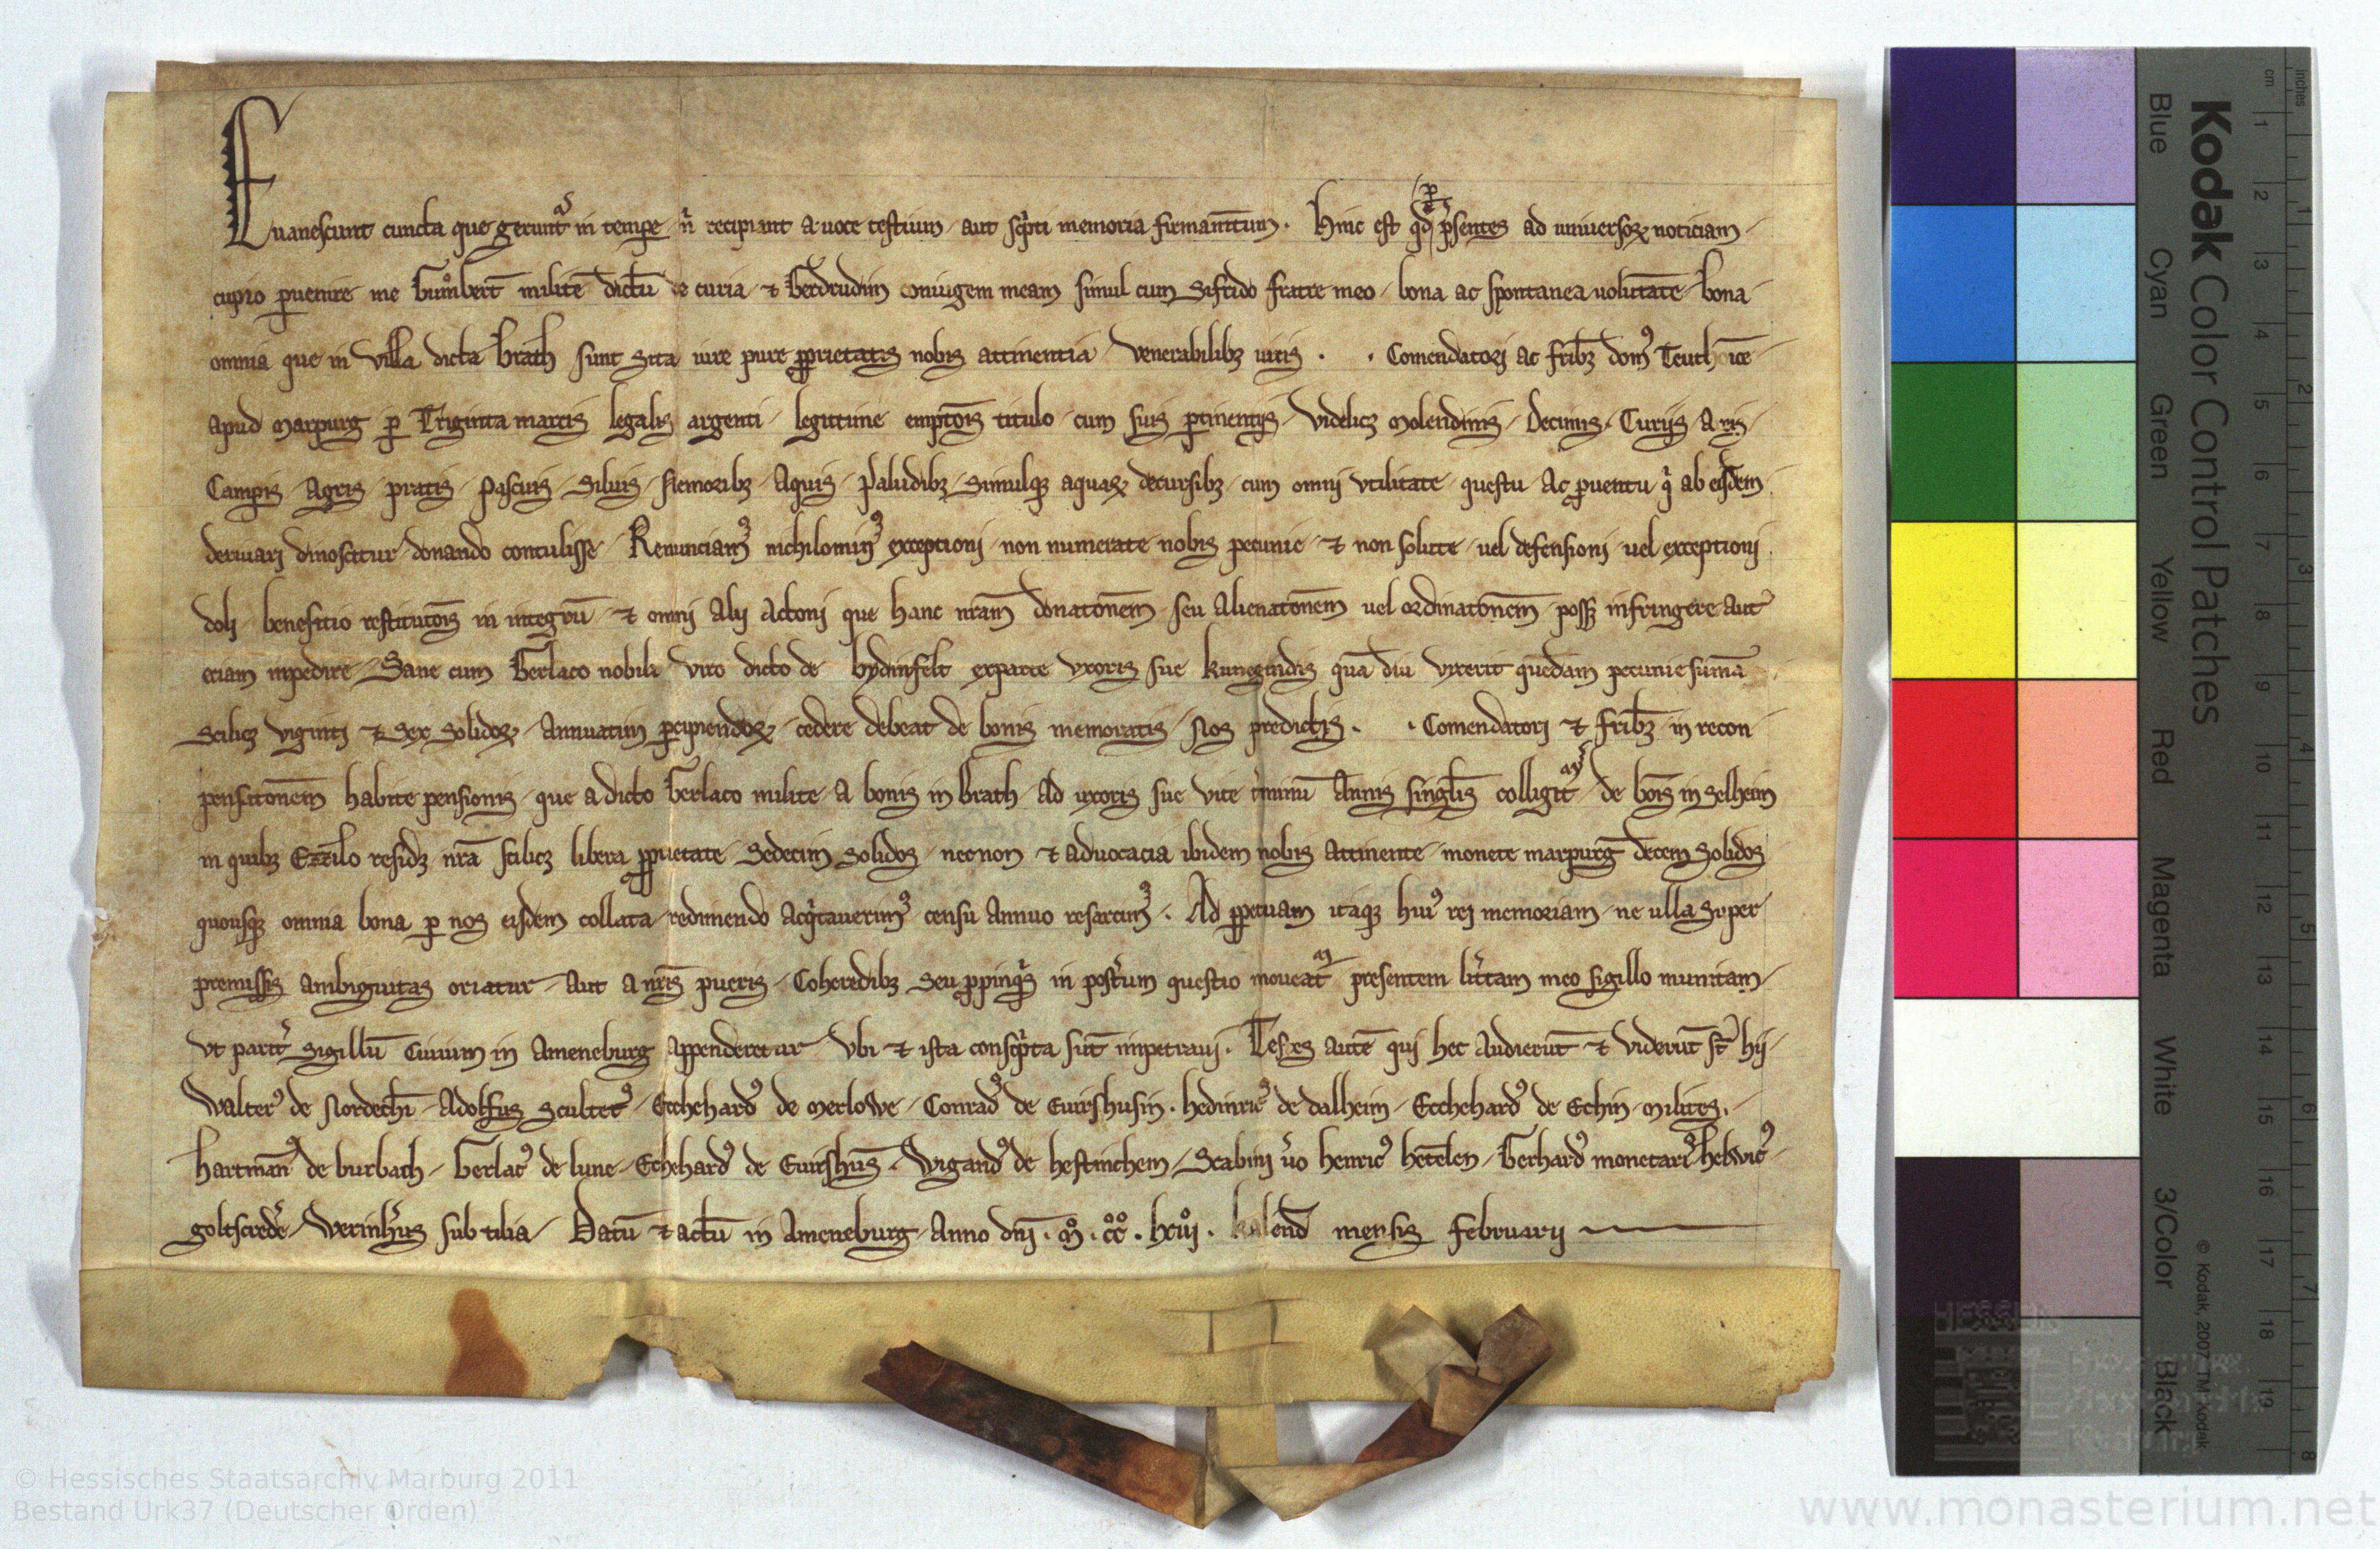 Euanescunt cuncta que gerunt᷑ in tempe n̄ recipiant a uoce testium aut sc̓pti memoria firmam̄tum. Hinc est qd̓ p̄sentes ad uniuersoꝝ noticiam
cupio ꝑuenire me Gūmbert̄ militē dictū de curia ⁊ Gerdrudim coniugem meam simul cum Sifrido fratre meo bona ac spontanea uolūtate bona
omnia que in villa dicta Brath sunt sita iure pure ꝓprietatis nobis attinentia venerabilibꝫ uiris . . Comendatorj ac fr̄ibꝫ dom᷒ Teuthonice
apud Marpurg ꝑ Triginta marcis legalis argenti legittime emptōis titulo cum suis ꝑtinentijs videlicꝫ Molendinis Decimis Curijs Aris
Campis Agris pratis Pascuis Siluis Nemoribꝫ Aquis Paludibꝫ Simulqꝫ aquaꝝ decursibꝫ cum omnj vtilitate questu Ac ꝓuentu q̓ ab eisdem
deriuarj dinoscitur donando contulisse Renunciam᷒ nichilomin᷒ exceptionj non numerate nobis pecunie ⁊ non solute uel defensionj uel exceptionj
dolj beneficio restitutōis in integrū ⁊ omnj Alij Actōnj que hanc nr̄am donatōnem seu Alienatōnem uel ordinatōnem possꝫ infringere aut
etiam inpedire Sane cum Gerlaco nobili viro dicto de bydinfelt exparte vxoris sue kunegundis quā diu vixerit quedam pecunie sum̄a
Scilicꝫ viginti ⁊ Sex Solidoꝝ Annuatim ꝑcipiendoꝝ cedere debeat de bonis memoratis Nos predictis . . Comendatorj ⁊ fr̄ibꝫ in recon
pensatōnem habite pensionis que a dicto Gerlaco milite A bonis in Brath Ad uxoris sue vite t̓minū Annis singl̄is colligit᷑ de bōis in Selheim
in quibꝫ Ezzilo residꝫ nr̄a scilicꝫ libera ꝓprietate Sedecim Solidos necnon ⁊ aduocacia ibidem nobis Attinente monete marpurḡ decem Solidos
quousqꝫ omnia bona ꝑ nos eisdem collata redimendo Acq̓tauerim᷒ censu Annuo resarcim᷒ . Ad ꝑpetuam itaqꝫ hui᷒ rej memoriam ne ulla Super
premissis ambiguitas oriatur Aut a nr̄is pueris Coheredibꝫ Seu ꝓpinq̓s in post̓um questio moueat᷑ presentem litt̓am meo sigillo munitam
vt parit̓ Sigillū Ciuium in Ameneburg Appenderetur vbi ⁊ ista consc̓pta sūt impetrauj . Testes autē quj hec Audierūt ⁊ viderūt st̄ hij
Walter᷒ de Nordech̄ Adolfus Scultet᷒ Ecchehard᷒ de Merlowe Conrad᷒ de Euirshusin . hedinric᷒ de dalheim Ecchehard᷒ de Echin Milites .
hartman᷒ de burbach Gerlac᷒ de lune Ecchehard᷒ de Euirshus̄ . Wigand᷒ de hestinchem Scabinj v̓o henric᷒ heczelen Gerhard᷒ monetari᷒ helwic᷒
goltscred̓e Werinh̓us sub tilia Datū ⁊ actū in Ameneburg Anno dn̄j . M̊ . c̊c̊ . lxiiij̊ . kalend̄ mensis Februarij
Kodak Color Control Patches
Blue Cyan Green Yellow Red Magenta White 3/Color Black
© Kodak, 2007 TM: Kodak
cm 1 2 3 4 5 6 7 8 9 10 11 12 13 14 15 16 17 18 19
inches 1 2 3 4 5 6 7 8
© Hessisches Staatsarchiv Marburg 2011
Bestand Urk37 (Deutscher Orden)
www.monasterium.net